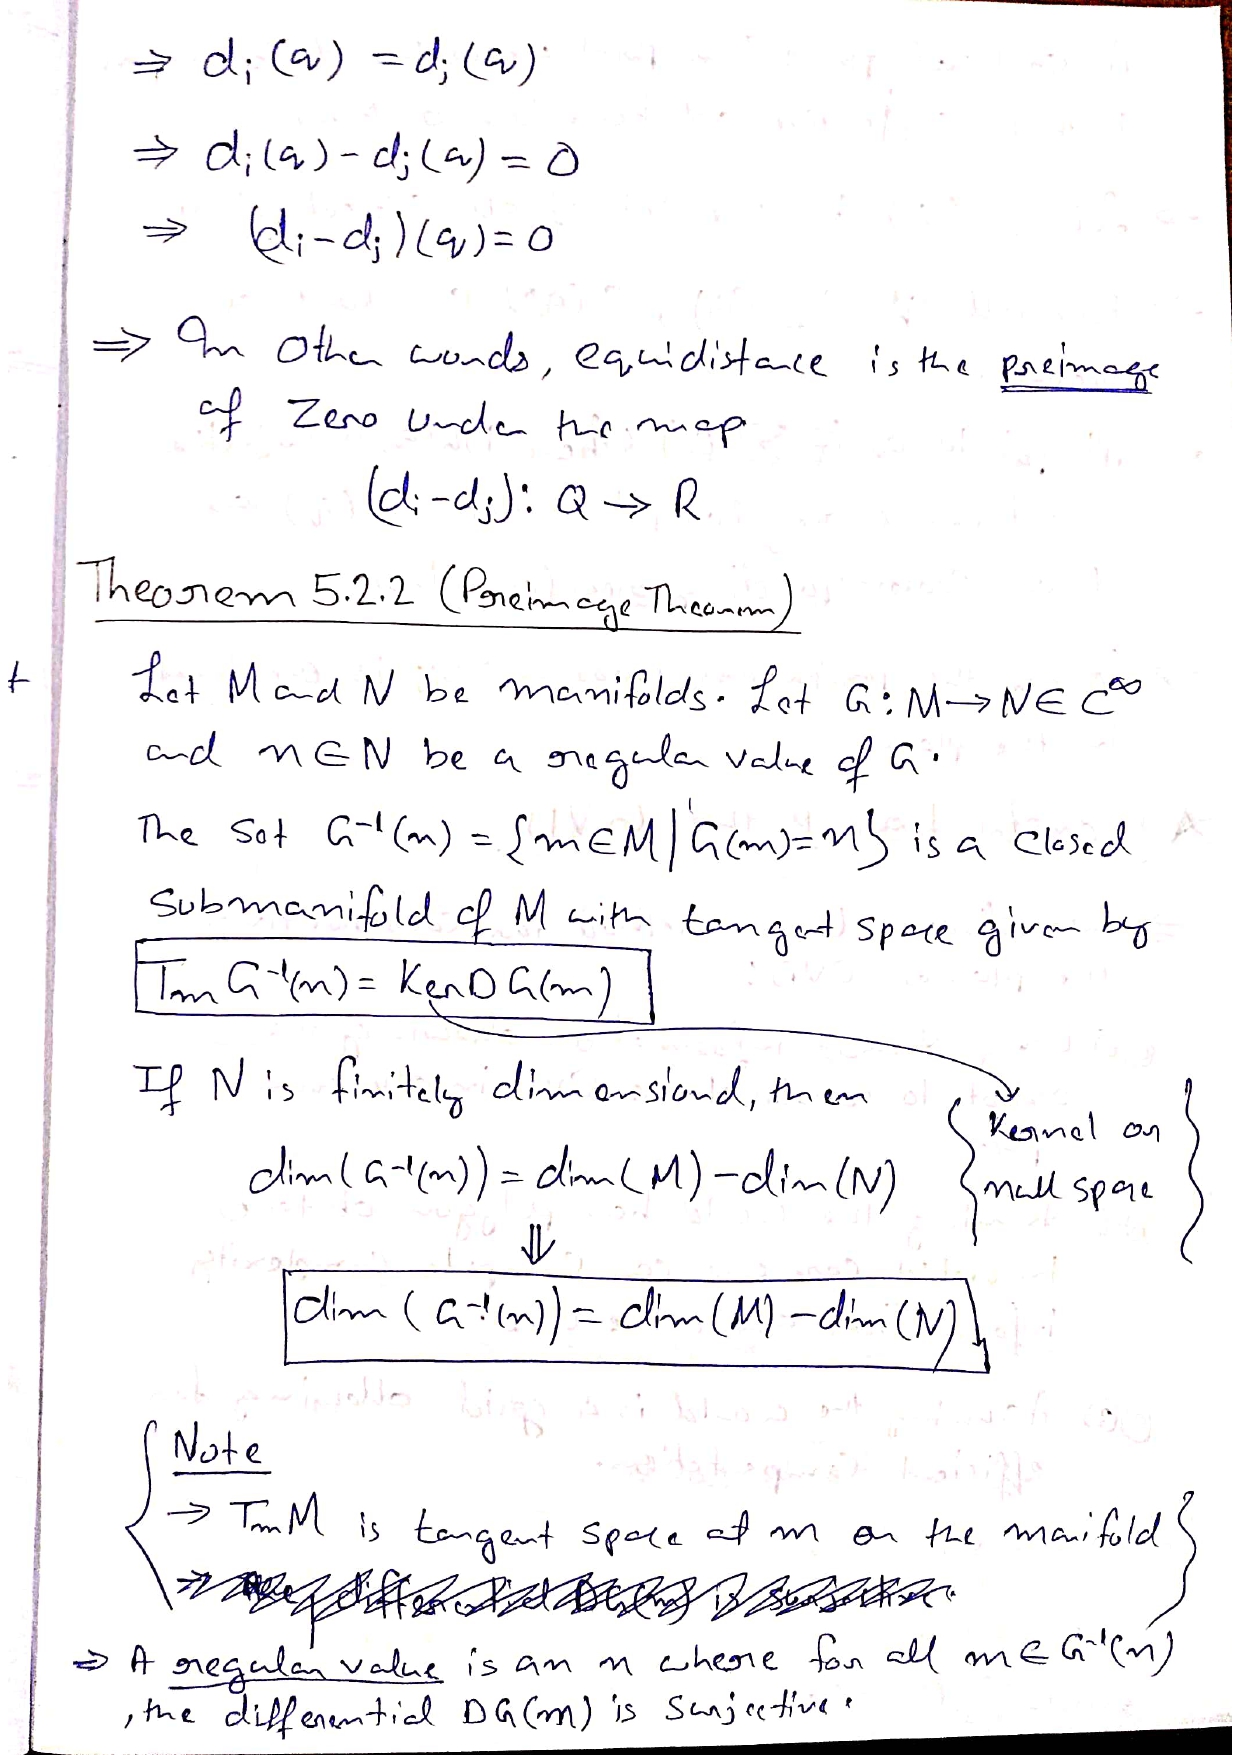 ⇒ di(q) = dj(q)
⇒ di(q) - dj(q) = 0
⇒ (di-dj)(q) = 0
⇒ In other words, equidistance is the preimage
of zero under the map
(di-dj): Q → R
Theorem 5.2.2 (Preimage Theorem)
Let M and N be manifolds. Let G: M→N ∈ C^∞
and n∈N be a regular value of G.
The set G⁻¹(n) = {m∈M | G(m)=n} is a closed
submanifold of M with tangent space given by
TmG⁻¹(n) = Ker DG(m)
If N is finitely dimensional, then
{ Kernel or
dim(G⁻¹(n)) = dim(M) - dim(N)
null space }
⇓
dim(G⁻¹(n)) = dim(M) - dim(N)
Note
→ TmM is tangent space at m on the manifold
⇒ A regular value is an n where for all m ∈ G⁻¹(n)
, the differential DG(m) is surjective.